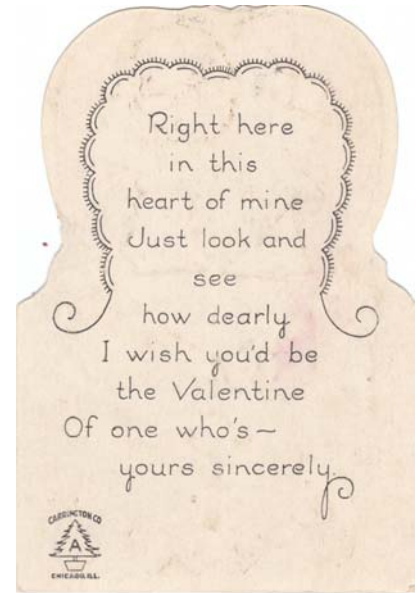 Right here
in this
heart of mine
Just look and
see
how dearly
I wish you'd be
the Valentine
Of one who's~
yours sincerely.
CARRINGTON CO
A
CHICAGO, ILL.